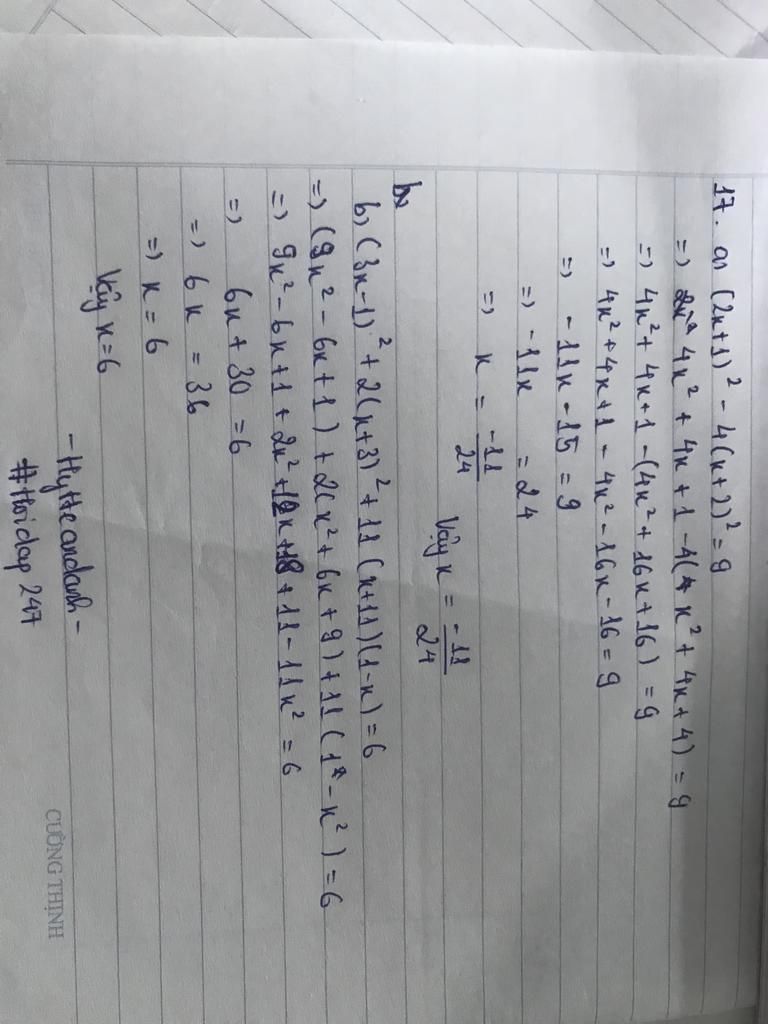 17. a) (2x+1)² - 4(x+2)² = 9
=> 4x² + 4x + 1 - 4(x² + 4x + 4) = 9
=> 4x² + 4x + 1 - (4x² + 16x + 16) = 9
=> 4x² + 4x + 1 - 4x² - 16x - 16 = 9
=> -11x - 15 = 9
=> -11x = 24
=> x = -11/24
Vậy x = -11/24
b)
b) (3x-1)² + 2(x+3)² + 11(x+11)(1-x) = 6
=> (9x² - 6x + 1) + 2(x² + 6x + 9) + 11(1² - x²) = 6
=> 9x² - 6x + 1 + 2x² + 12x + 18 + 11 - 11x² = 6
=> 6x + 30 = 6
=> 6x = 36
=> x = 6
Vậy x = 6
#Hoidap 247
CƯỜNG THỊNH